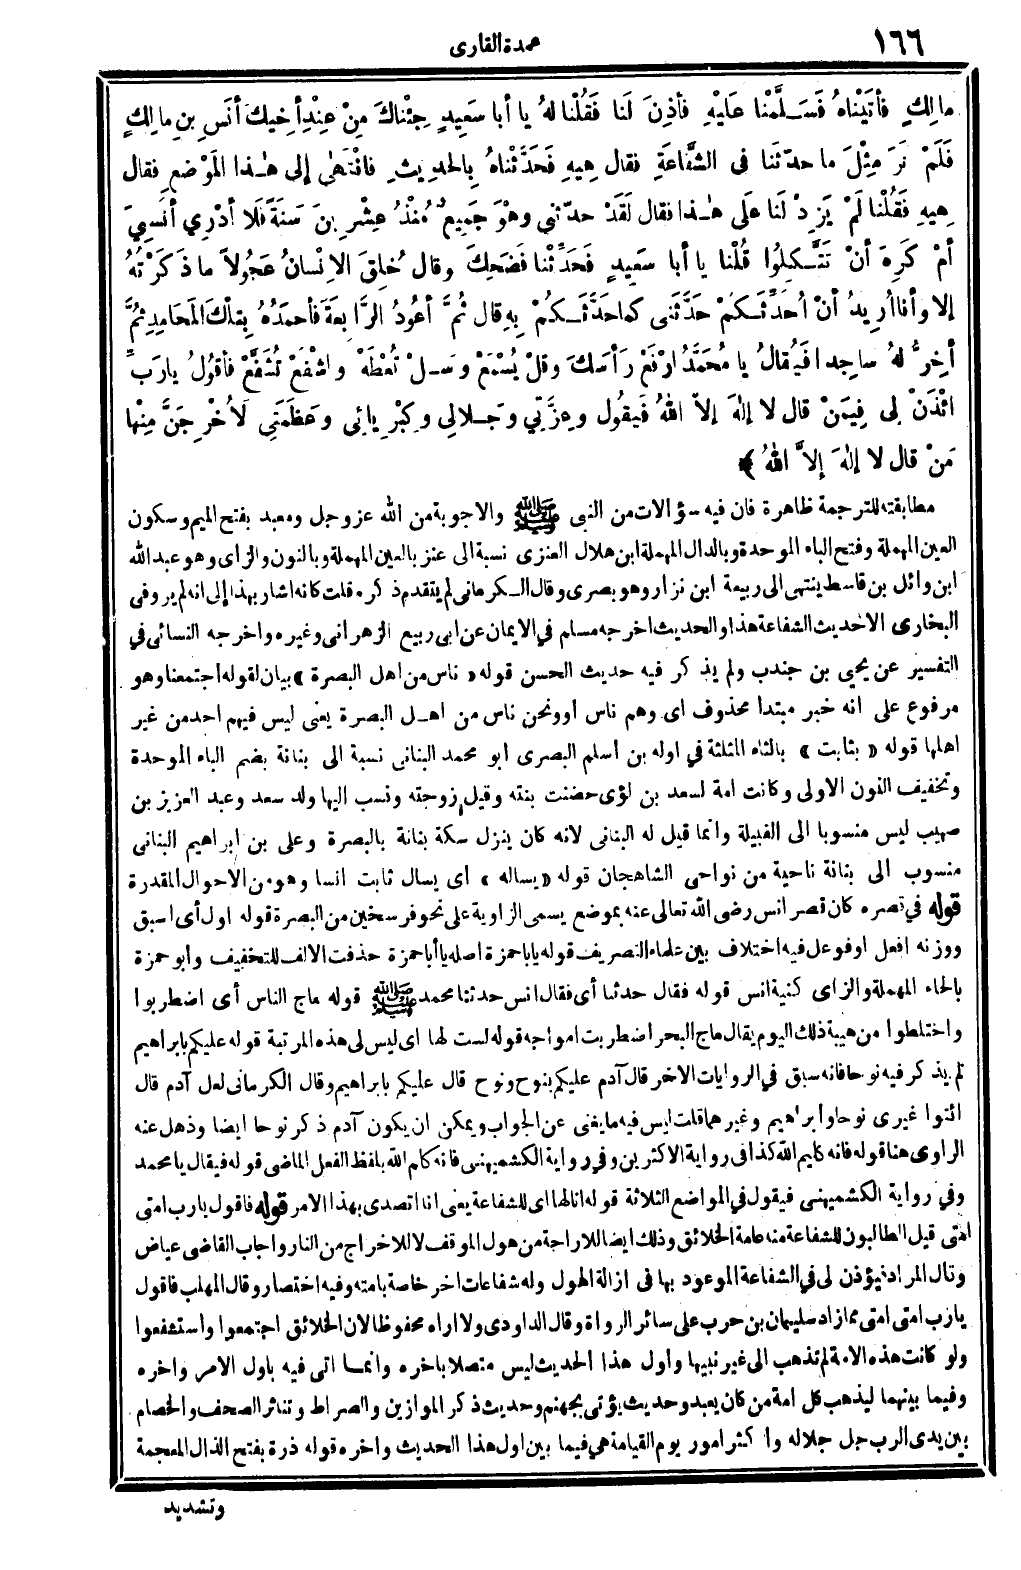 ١٦٦
عمدة القارى
مالِكٍ فأتَيْناهُ فَسَلَّمْنا عَلَيْهِ فأذِنَ لَنا فَقُلْنا لهُ يا أبا سَعِيدٍ جِئْناكَ مِنْ عِنْدِ أخِيكَ أنَسِ بنِ مالِكٍ
فَلَمْ نَرَ مِثْلَ ما حدّثَنا فى الشَّفاعَةِ فقال هِيهِ فَحَدَّثْناهُ بِالحَدِيثِ فانْتَهٰى إلى هٰذا المَوْضِعِ فقال
هِيهِ فَقُلْنا لَمْ يَزِدْ لَنا عَلى هٰذا فقال لَقَدْ حدّثنى وهْوَ جَمِيعٌ مُنْذُ عِشْرِينَ سَنَةً فَلا أدْرِي أنَسِيَ
أمْ كَرِهَ أنْ تَتَّكِلُوا قُلْنا يا أبا سَعِيدٍ فَحَدِّثْنا فَضَحِكَ وقال خُلِقَ الإنْسانُ عَجُولاً ما ذَكَرْتُهُ
إلا وأنا أُرِيدُ أنْ أُحَدِّثَكُمْ حَدَّثَنى كما حَدَّثَكُمْ بِهِ قال ثُمَّ أعُودُ الرَّابِعَةَ فأحمَدُهُ بِتِلْكَ المَحامِدِ ثُمَّ
أخِرُّ لهُ ساجِدا فَيُقالُ يا مُحَمَّدُ ارْفَعْ رَأسَكَ وقلْ يُسْمَعْ وسَلْ تُعْطَهْ واشْفَعْ تُشَفَّعْ فأقُولُ يارَبِّ
ائْذَنْ لى فِيمَنْ قال لا إلٰهَ إلاّ اللهُ فَيقُول وعِزَّتِي وجَلالِي وكِبْرِيائِى وعَظَمَتِى لَأُخْرِجَنَّ مِنْها
مَنْ قال لا إلٰهَ إلاَّ اللهُ ﴾
مطابقته للترجمة ظاهرة فان فيه سؤالات من النبى ﷺ والاجوبة من الله عز وجل ومعبد بفتح الميم وسكون
العين المهملة وفتح الباء الموحدة وبالدال المهملة ابن هلال العنزى نسبة الى عنز بالعين المهملة وبالنون والزاى وهو عبد الله
ابن وائل بن قاسط ينتهى الى ربيعة ابن نزار وهو بصرى وقال الكرمانى لم يتقدم ذكره قلت كانه اشار بهذا إلى انه لم يرو فى
البخارى الا حديث الشفاعة هذا والحديث اخرجه مسلم في الايمان عن ابى ربيع الزهرانى وغيره واخرجه النسائى في
التفسير عن يحيي بن جندب ولم يذكر فيه حديث الحسن قوله «ناس من اهل البصرة» بيان لقوله اجتمعنا وهو
مرفوع على انه خبر مبتدا محذوف اى وهم ناس أو ونحن ناس من اهل البصرة يعنى ليس فيهم احد من غير
اهلها قوله «بثابت» بالثاء المثلثة في اوله بن أسلم البصرى ابو محمد البنانى نسبة الى بنانة بضم الباء الموحدة
وتخفيف النون الاولى وكانت امة لسعد بن لؤى حضنت بنته وقيل زوجته ونسب اليها ولد سعد وعبد العزيز بن
صهيب ليس منسوبا الى القبيلة وانما قيل له البنانى لانه كان ينزل سكة بنانة بالبصرة وعلى بن ابراهيم البنانى
منسوب الى بنانة ناحية من نواحى الشاهجان قوله «يساله» اى يسال ثابت انسا وهو من الاحوال المقدرة
قوله في قصره كان قصر انس رضى الله تعالى عنه بموضع يسمى الزاوية على نحو فرسخين من البصرة قوله اول أى اسبق
ووزنه افعل او فوعل فيه اختلاف بين علماء التصريف قوله يا با حمزة اصله يا أبا حمزة حذفت الالف للتخفيف وأبو حمزة
بالحاء المهملة والزاى كنية انس قوله فقال حدثنا أى فقال انس حدثنا محمد ﷺ قوله ماج الناس أى اضطربوا
واختلطوا من هيبة ذلك اليوم يقال ماج البحر اضطربت امواجه قوله لست لها اى ليس لى هذه المرتبة قوله عليكم بابراهيم
لم يذكر فيه نوحا فانه سبق في الروايات الاخر قال آدم عليكم بنوح ونوح قال عليكم بابراهيم وقال الكرمانى لعل آدم قال
ائتوا غيرى نوحا وابراهيم وغيرهما قلت ليس فيه ما يغنى عن الجواب ويمكن ان يكون آدم ذكر نوحا ايضا وذهل عنه
الراوى هنا قوله فانه كليم الله كذا فى رواية الاكثرين وفى رواية الكشميهنى فانه كلم الله بلفظ الفعل الماضى قوله فيقال يا محمد
وفي رواية الكشميهنى فيقول في المواضع الثلاثة قوله انا لها اى للشفاعة يعنى انا اتصدى بهذا الامر قوله فاقول يارب امتى
امتى قيل الطالبون للشفاعة منه عامة الخلائق وذلك ايضا للاراحة من هول الموقف لا للاخراج من النار واجاب القاضى عياض
وقال المراد فيؤذن لى في الشفاعة الموعود بها فى ازالة الهول وله شفاعات اخر خاصة بامته وفيه اختصار وقال المهلب فاقول
يارب امتى امتى مما زاد سليمان بن حرب على سائر الرواة وقال الداودى ولا اراه محفوظا لان الخلائق اجتمعوا واستشفعوا
ولو كانت هذه الامة لم تذهب الى غير نبيها واول هذا الحديث ليس متصلا باخره وانما اتى فيه باول الامر واخره
وفيما بينهما ليذهب كل امة من كان يعبد وحديث يؤتى بجهنم وحديث ذكر الموازين والصراط وتناثر الصحف والخصام
بين يدى الرب جل جلاله واكثر امور يوم القيامة هي فيما بين اول هذا الحديث واخره قوله ذرة بفتح الذال المعجمة
وتشديد